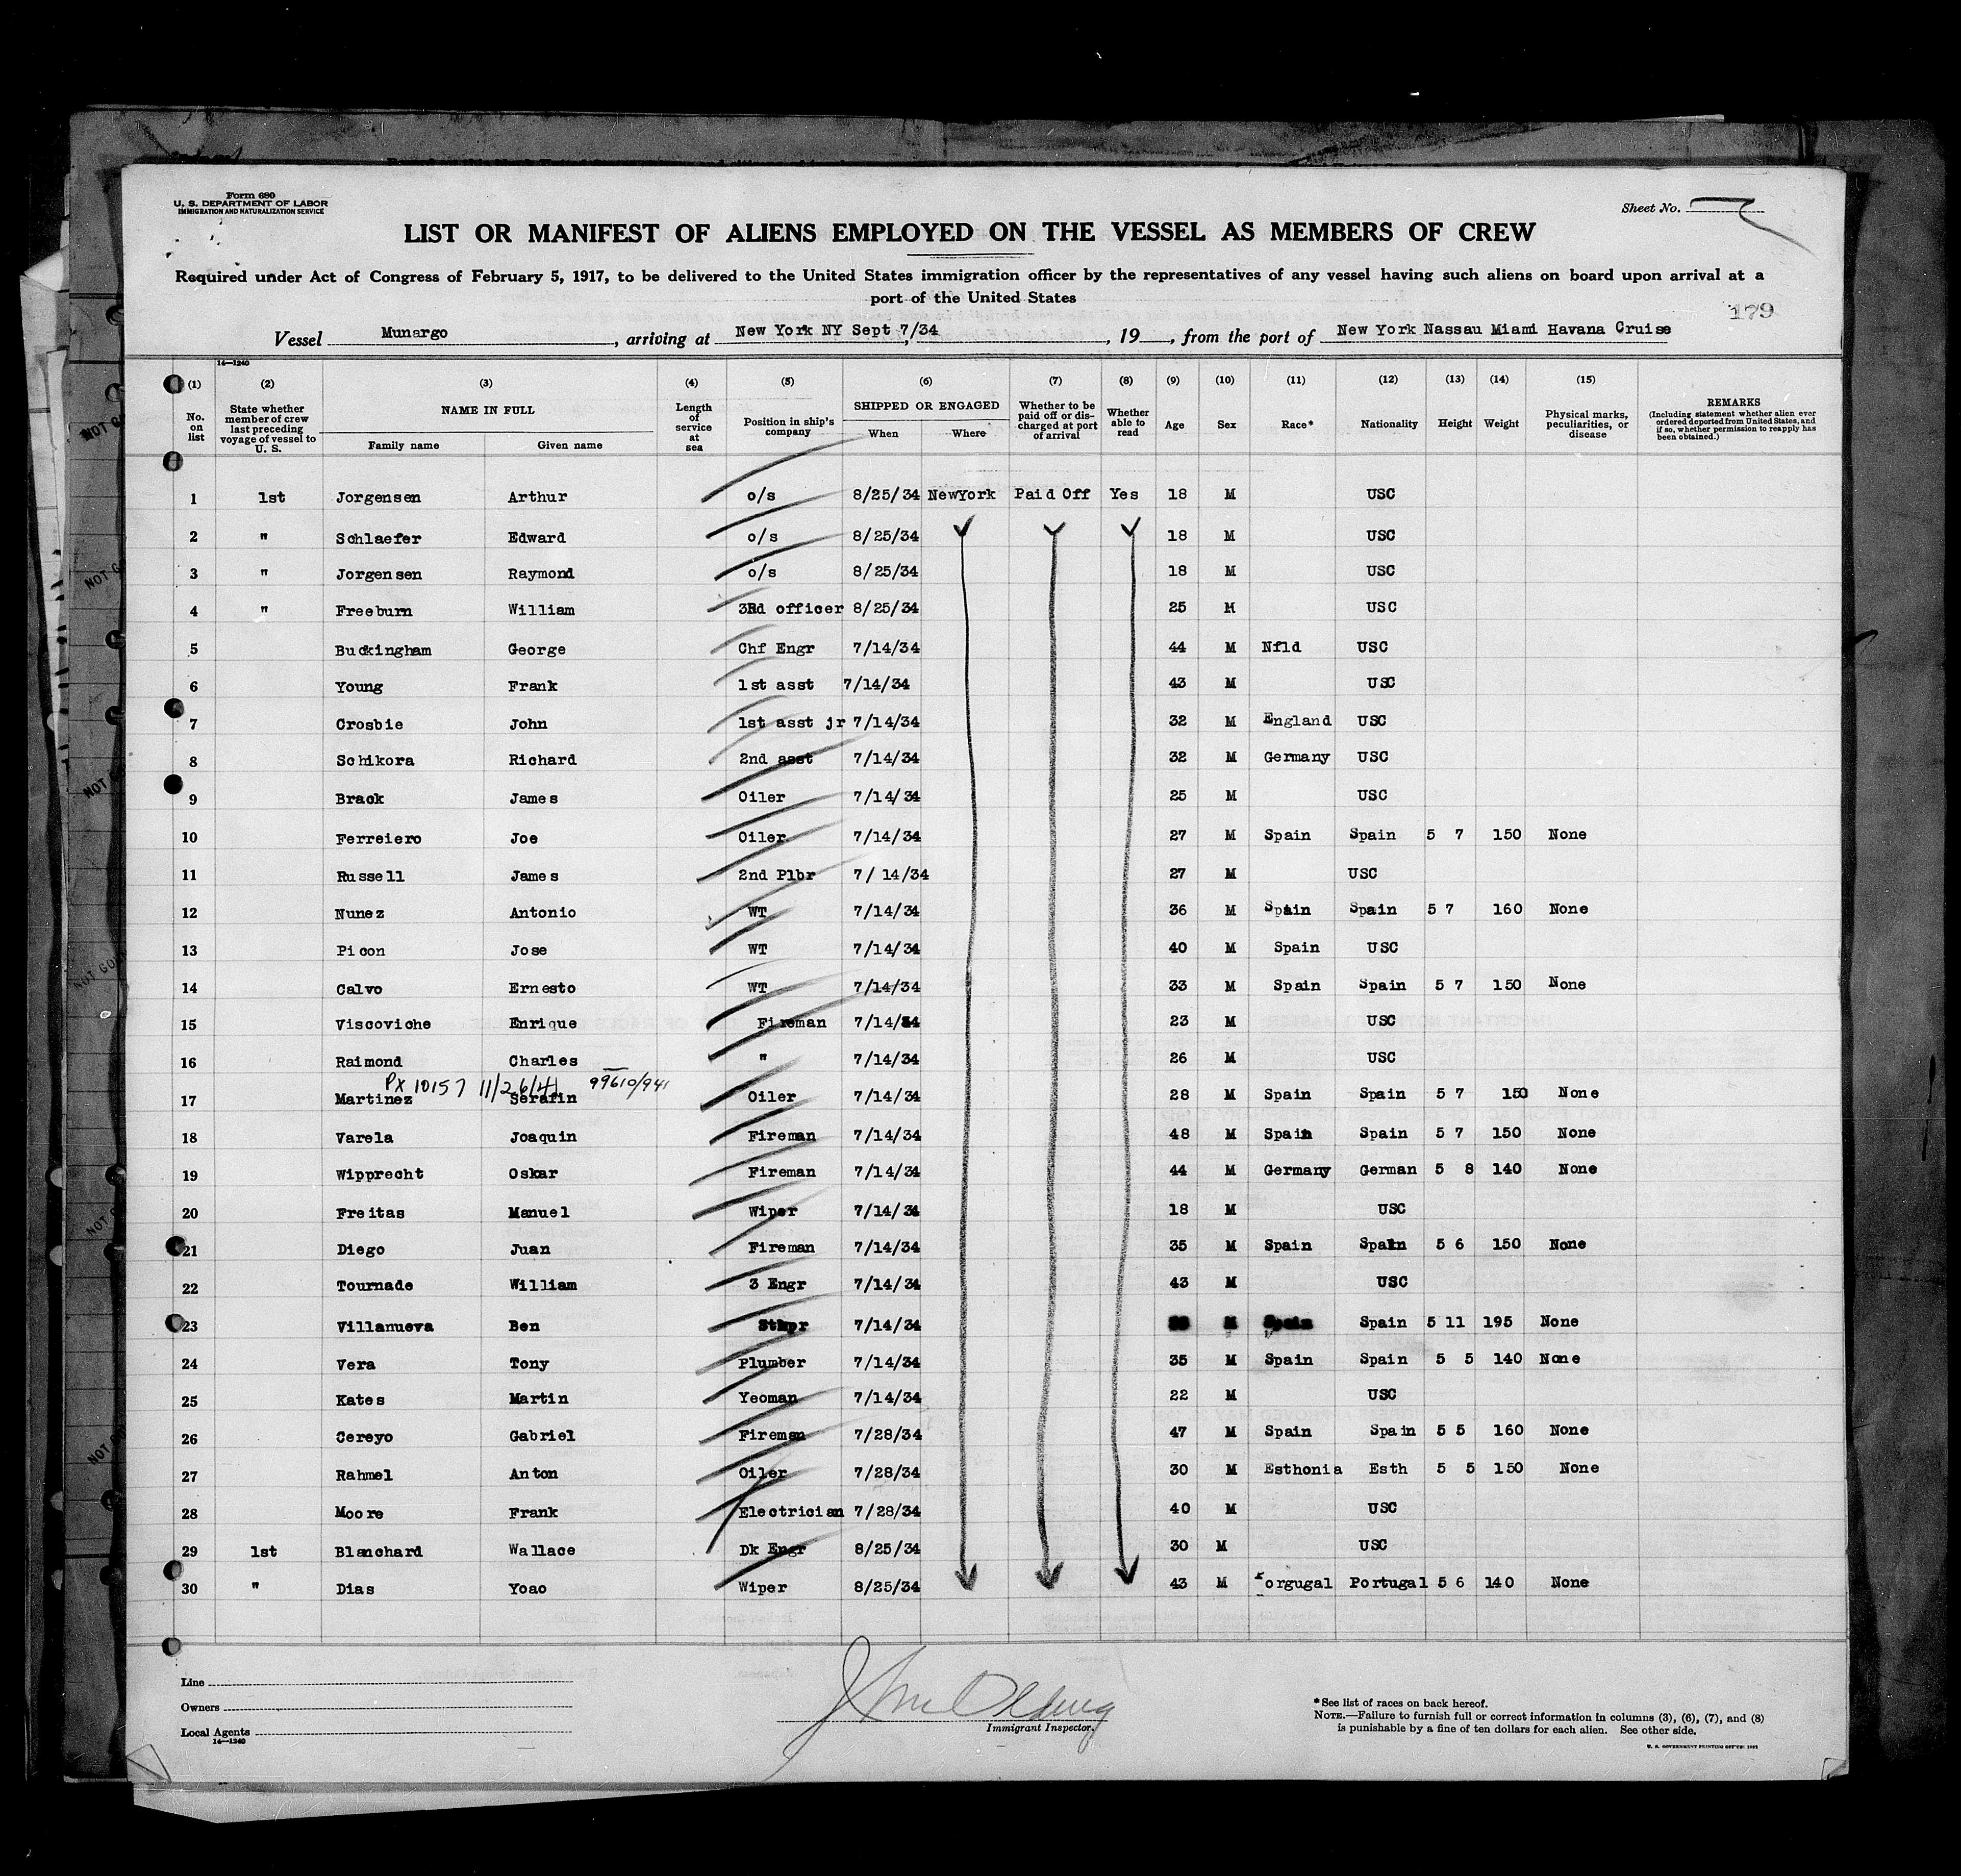 Form 680
U. S. DEPARTMENT OF LABOR
IMMIGRATION AND NATURALIZATION SERVICE
Sheet No.
LIST OR MANIFEST OF ALIENS EMPLOYED ON THE VESSEL AS MEMBERS OF CREW
Required under Act of Congress of February 5, 1917, to be delivered to the United States immigration officer by the representatives of any vessel having such aliens on board upon arrival at a
port of the United States
179
Vessel Munargo, arriving at New York NY Sept 7/34, 19, from the port of New York Nassau Miami Havana Cruise
14—1240
(1) (2) (3) (4) (5) (6) (7) (8) (9) (10) (11) (12) (13) (14) (15)
No. on list State whether member of crew last preceding voyage of vessel to U. S. NAME IN FULL Family name Given name Length of service at sea Position in ship's company SHIPPED OR ENGAGED When Where Whether to be paid off or discharged at port of arrival Whether able to read Age Sex Race* Nationality Height Weight Physical marks, peculiarities, or disease REMARKS (Including statement whether alien ever ordered deported from United States, and if so, whether permission to reapply has been obtained.)
1 1st Jorgensen Arthur o/s 8/25/34 NewYork Paid Off Yes 18 M USC
2 " Schlaefer Edward o/s 8/25/34 18 M USC
3 " Jorgensen Raymond o/s 8/25/34 18 M USC
4 " Freeburn William 3Rd officer 8/25/34 25 M USC
5 Buckingham George Chf Engr 7/14/34 44 M Nfld USC
6 Young Frank 1st asst 7/14/34 43 M USC
7 Crosbie John 1st asst jr 7/14/34 32 M England USC
8 Schikora Richard 2nd asst 7/14/34 32 M Germany USC
9 Brack James Oiler 7/14/34 25 M USC
10 Ferreiero Joe Oiler 7/14/34 27 M Spain Spain 5 7 150 None
11 Russell James 2nd Plbr 7/ 14/34 27 M USC
12 Nunez Antonio WT 7/14/34 36 M Spain Spain 5 7 160 None
13 Picon Jose WT 7/14/34 40 M Spain USC
14 Calvo Ernesto WT 7/14/34 33 M Spain Spain 5 7 150 None
15 Viscoviche Enrique Fireman 7/14/34 23 M USC
16 Raimond Charles " 7/14/34 26 M USC
PX 10157 11/26/41 99610/941
17 Martinez Serafin Oiler 7/14/34 28 M Spain Spain 5 7 150 None
18 Varela Joaquin Fireman 7/14/34 48 M Spain Spain 5 7 150 None
19 Wipprecht Oskar Fireman 7/14/34 44 M Germany German 5 8 140 None
20 Freitas Manuel Wiper 7/14/34 18 M USC
21 Diego Juan Fireman 7/14/34 35 M Spain Spain 5 6 150 None
22 Tournade William 3 Engr 7/14/34 43 M USC
23 Villanueva Ben Stkpr 7/14/34 M Spain Spain 5 11 195 None
24 Vera Tony Plumber 7/14/34 35 M Spain Spain 5 5 140 None
25 Kates Martin Yeoman 7/14/34 22 M USC
26 Cereyo Gabriel Fireman 7/28/34 47 M Spain Spain 5 5 160 None
27 Rahmel Anton Oiler 7/28/34 30 M Esthonia Esth 5 5 150 None
28 Moore Frank Electrician 7/28/34 40 M USC
29 1st Blanchard Wallace Dk Engr 8/25/34 30 M USC
30 " Dias Yoao Wiper 8/25/34 43 M Porgugal Portugal 5 6 140 None
Line
Owners
Local Agents
14—1240
Immigrant Inspector.
*See list of races on back hereof.
NOTE.—Failure to furnish full or correct information in columns (3), (6), (7), and (8)
is punishable by a fine of ten dollars for each alien. See other side.